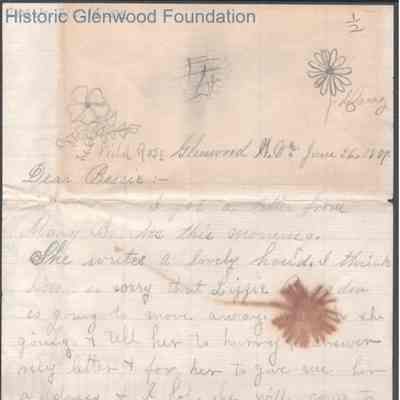 Historic Glenwood Foundation
1/2
Daisy
Wild Rose Glenwood N.C. June 26, 1889.
Dear Bessie:-
I got a letter from
Mary this morning.
She writes a lovely hand, I think
I'm so sorry that Lizzie
is going to move away. she
going, & tell her to hurry & answer
my letter & for her to give me her
address & I